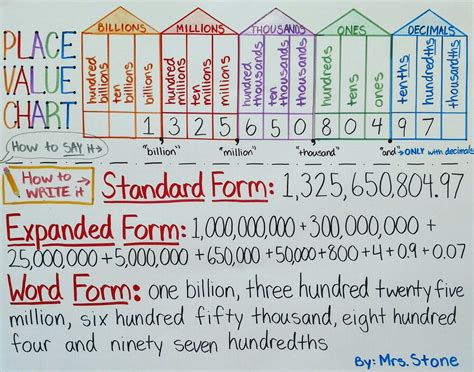 PLACE
VALUE
CHART
BILLIONS MILLIONS THOUSANDS ONES DECIMALS
hundred billions
ten billions
billions
hundred millions
ten millions
millions
hundred thousands
ten thousands
thousands
hundreds
tens
ones
tenths
hundredths
thousandths
1,325,650,804.97
How to SAY it→ "billion" "million" "thousand" "and"→ONLY with decimals
How to→
WRITE it
Standard Form: 1,325,650,804.97
Expanded Form: 1,000,000,000+300,000,000+
25,000,000+5,000,000+650,000+50,000+800+4+0.9+0.07
Word Form: one billion, three hundred twenty five
million, six hundred fifty thousand, eight hundred
four and ninety seven hundredths
By: Mrs. Stone